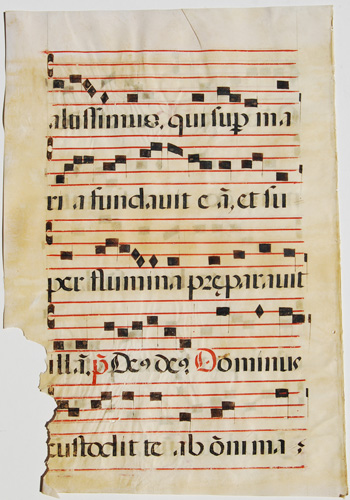 altissimus, qui sup̄ ma
ria fundavit eā, et su
per flumina pręparavit
illā, p̄. Deꝰ deꝰ Dominus
custodit te ab ōni ma :